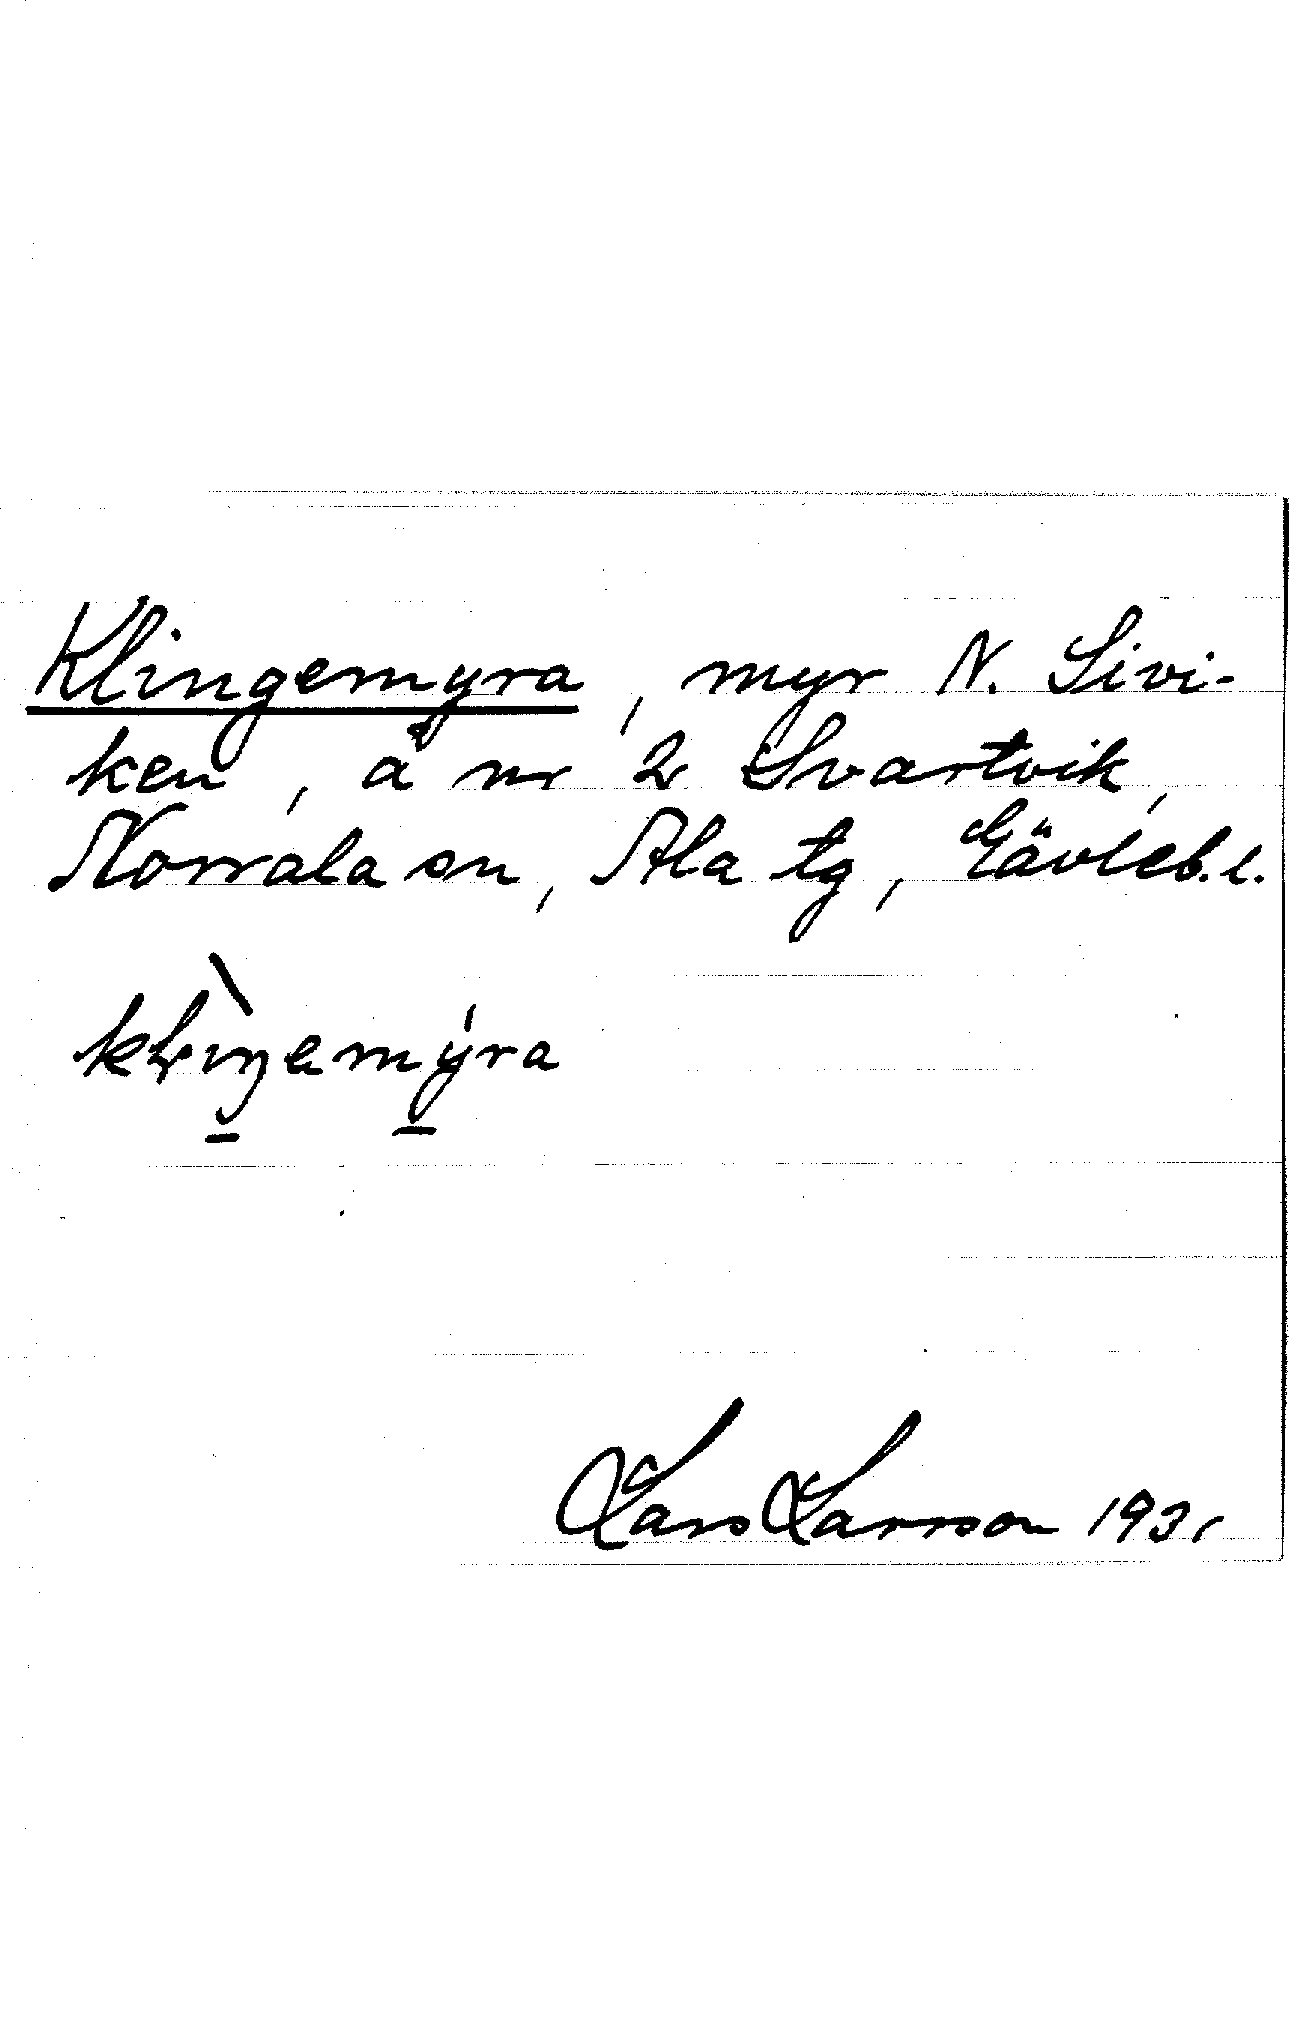 Klingemyra, myr N. Sivi-
ken, å nr 2 Svartvik,
Norrala sn, Ala tg, Gävleb. l.
kḷìŋemýra
Lars Larsson 1931